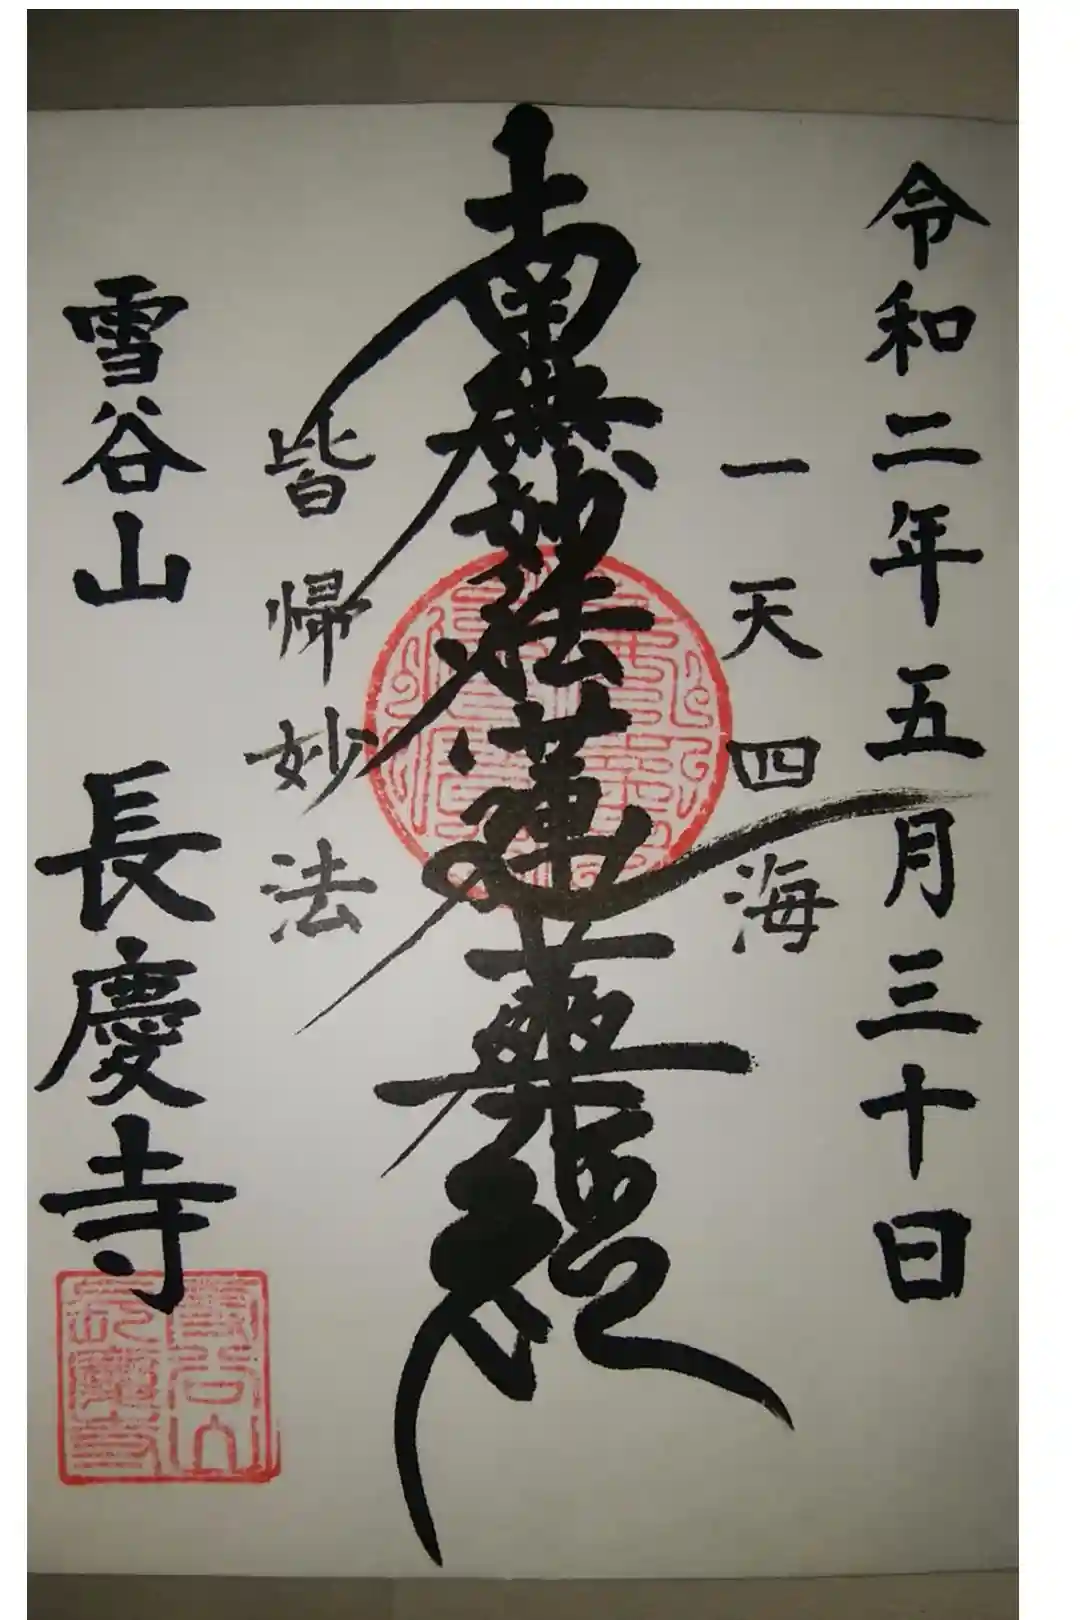 令和二年五月三十日
一天四海
南無妙法蓮華経
皆帰妙法
雪谷山 長慶寺
雪谷山
長慶寺